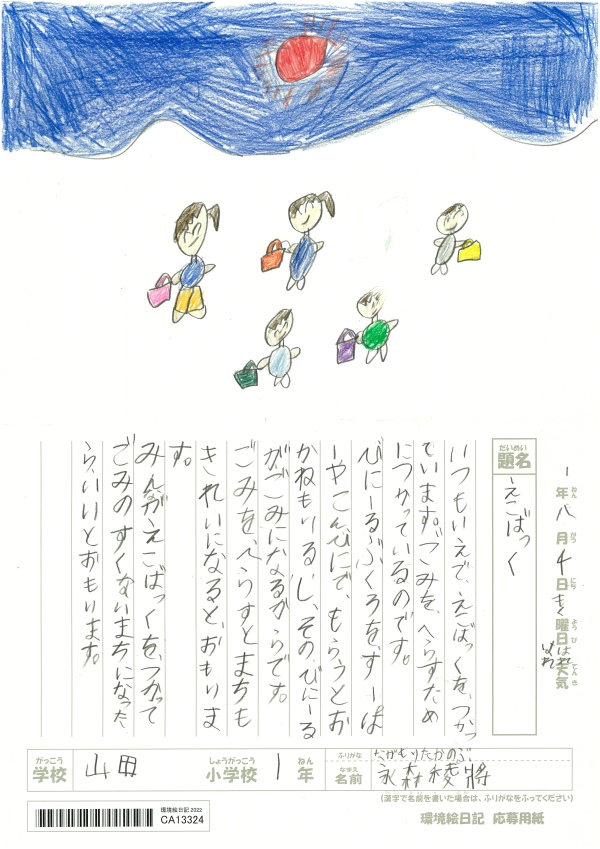 一年八月4日もく曜日はれ天気
ねん がつ にち ようび てんき
はれ
だいめい
題名
えこばっく
いつもいえで、えこばっくを、つかっ
ています。ごみを、へらすため
につかっているのです。
びにーるぶくろを、すーぱ
ーやこんびにで、もらうとお
かねもいるし、その、びにーる
がごみになるからです。
ごみを、へらすとまちも
きれいになると、おもいま
す。
みんながえこばっくを、つかって
ごみのすくないまちになった
ら、いいとおもいます。
がっこう しょうがっこう ねん ふりがな ながもりたかのぶ
学校 山田 小学校 1年 なまえ 名前 永森稜將
(漢字で名前を書いた場合は、ふりがなをふってください)
環境絵日記 2022
CA13324
環境絵日記 応募用紙